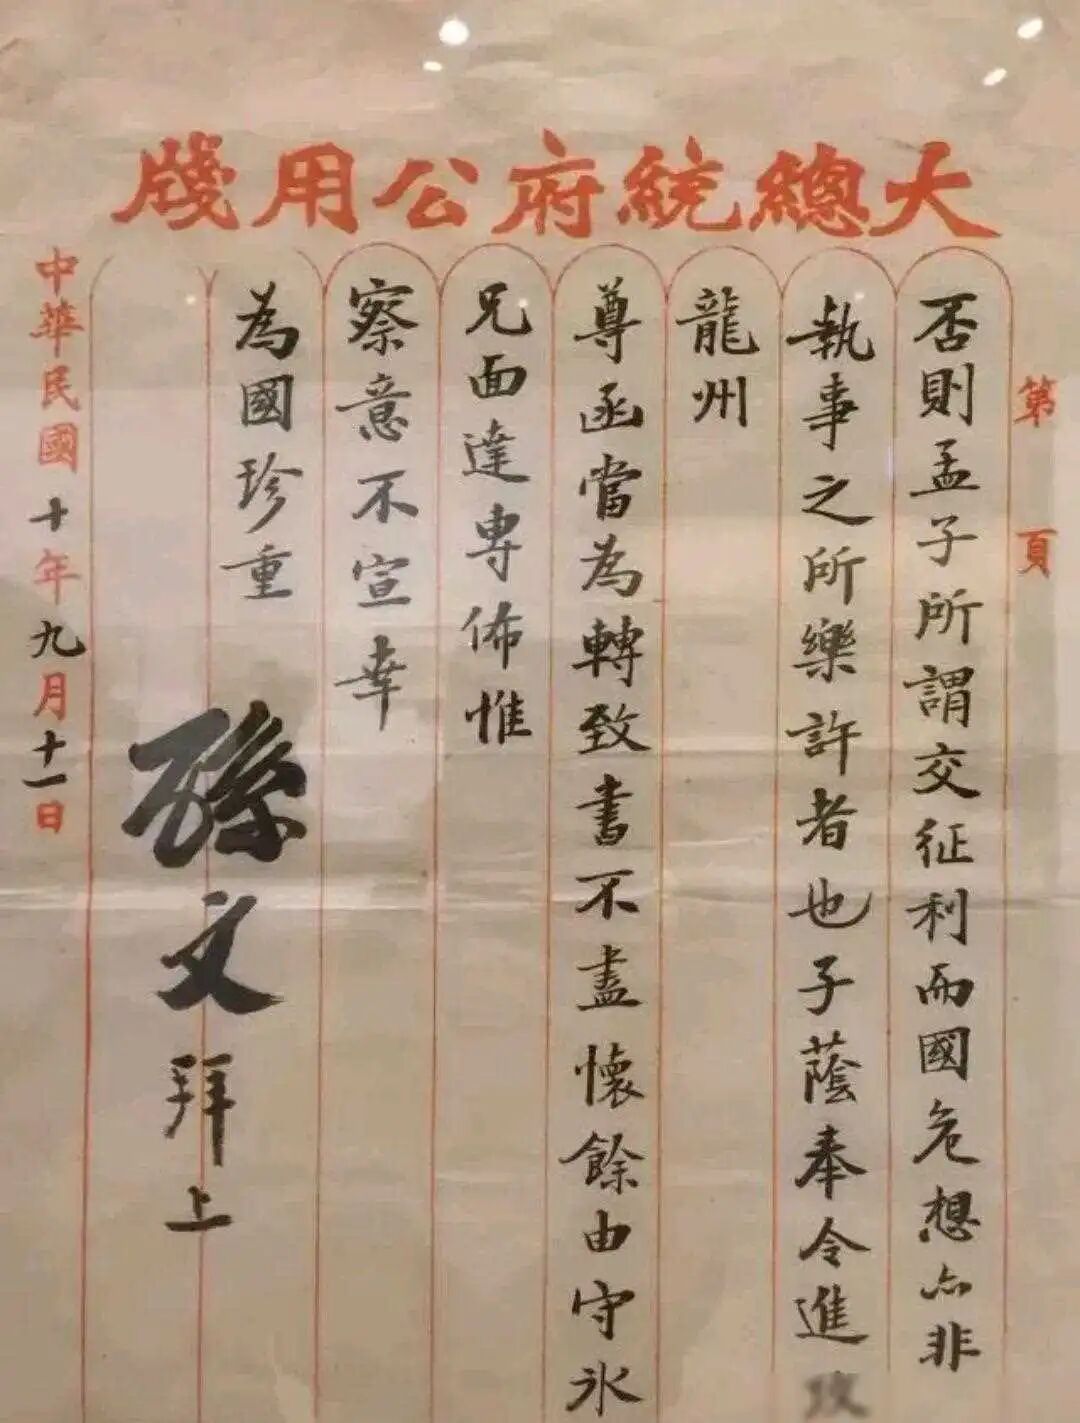 大總統府公用牋
第 頁
否則孟子所謂交征利而國危想亦非
執事之所樂許者也子蔭奉令進攻
龍州
尊函當為轉致書不盡懷餘由守冰
兄面達專佈惟
察意不宣幸
為國珍重
孫文拜上
中華民國十年九月十一日